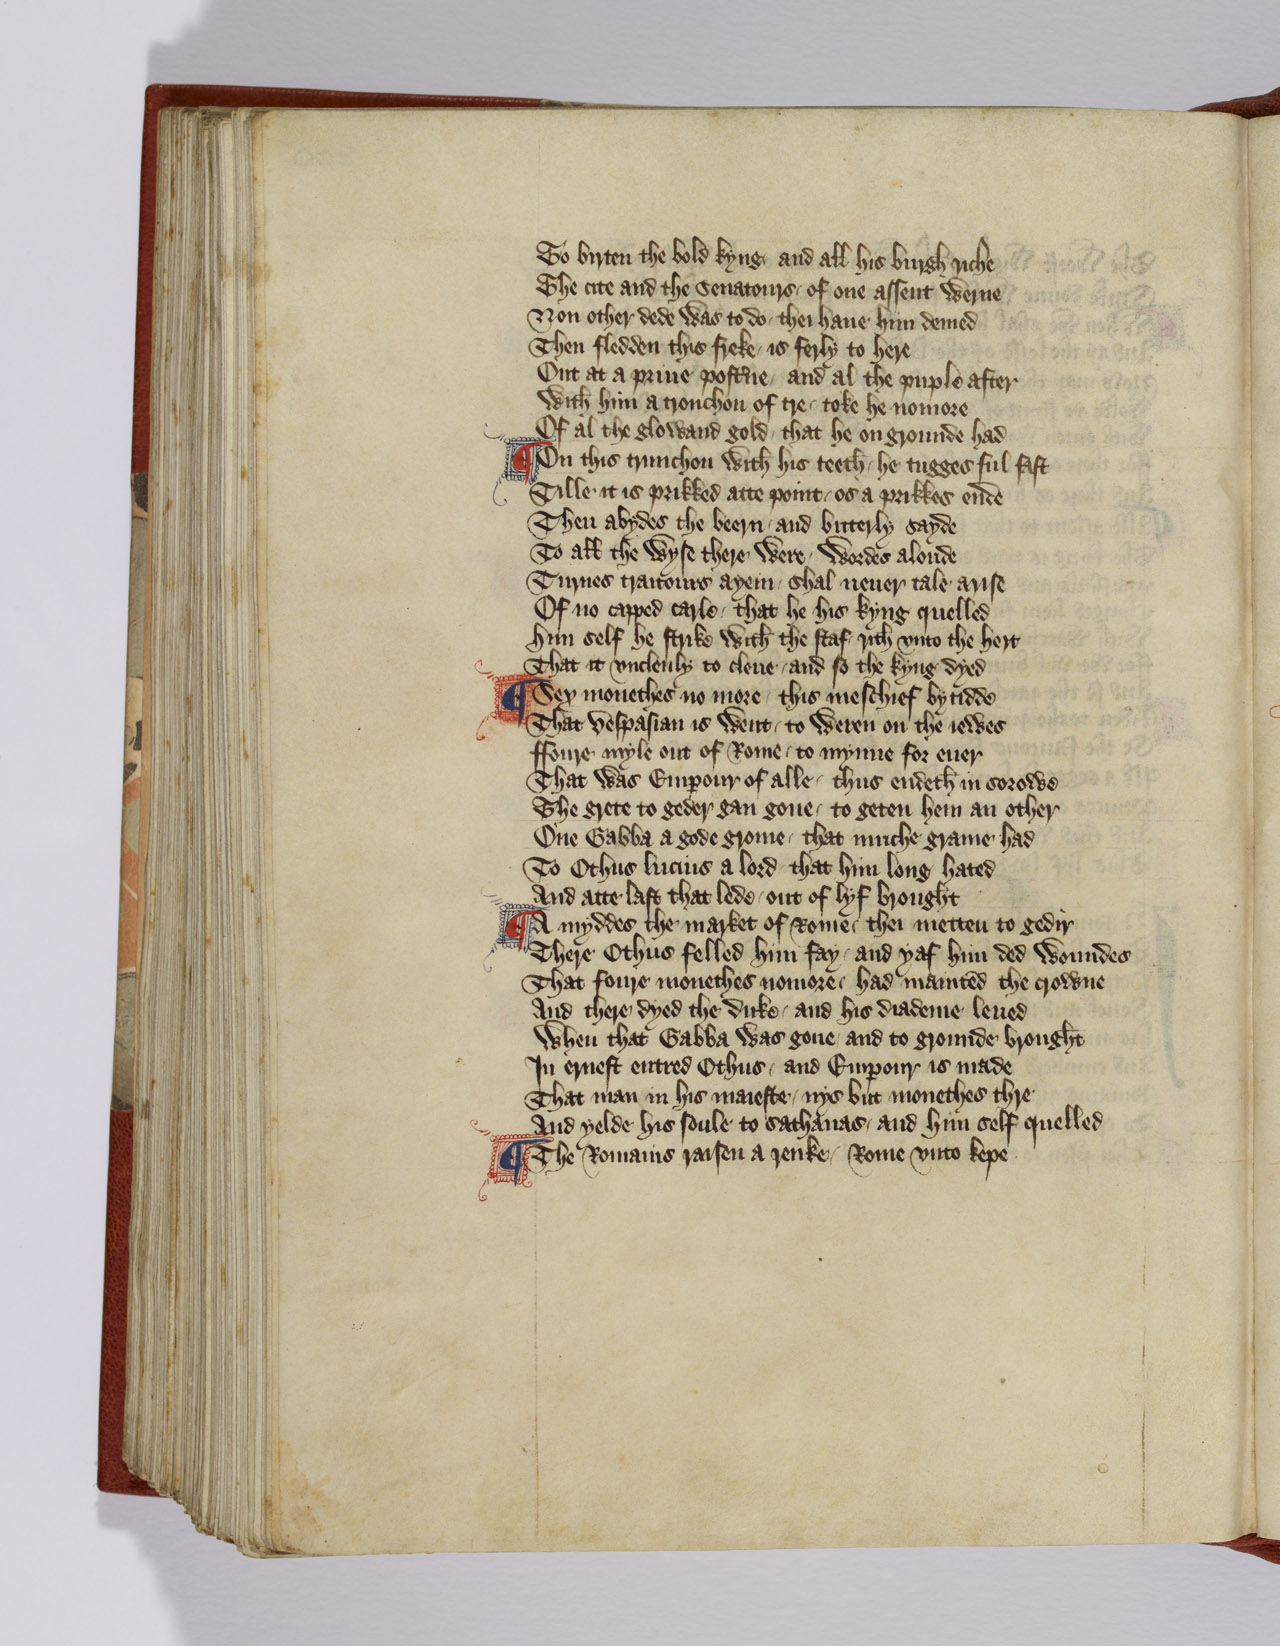 To birten the bold kyng / and all his burgh riche
The cite and the senatours / of one assent werne
Non other dede was to do / thei haue him demed
Then fledden this freke / is ferly to here
Out at a priue posterne / and al the puple after
With him a tronchon of tre / toke he nomore
Of al the glowand gold / that he on grounde had
¶ On this trunchon with his teeth / he tugges ful fast
Tille it is prikked atte point / os a prikkes ende
Then abydes the beern / and bitterly sayde
To all the wyse there were / wordes aloude
Turnes traitours ayein / shal neuer tale arise
Of no capped carle / that he his kyng quelled
him self he strike with the staf / rith vnto the hert
That it vnclenly to cleue / and so the kyng dyed
¶ Sex monethes no more / this meschief bytidde
That Vespasian is went / to weren on the iewes
ffoure myle out of Rome / to mynne for euer
That was Empour of alle / thus endeth in sorowe
The grete to geder gan gone / to geten hem an other
One Gabba a gode grome / that muche grame had
To Othus lucius a lord / that him long hated
And atte last that lede / out of lyf brought
¶ A myddes the market of Rome / thei metten to gedir
There Othus felled him fay / and yaf him ded woundes
That foure monethes nomore / had mainted the crowne
And there dyed the duke / and his diademe leued
When that Gabba was gone / and to grounde brought
In ernest entred Othus / and Empour is made
That man in his maieste / nys but monethes thre
And yelde his soule to sathanas / and him self quelled
¶ The Romains raisen a renke / Rome vnto kepe